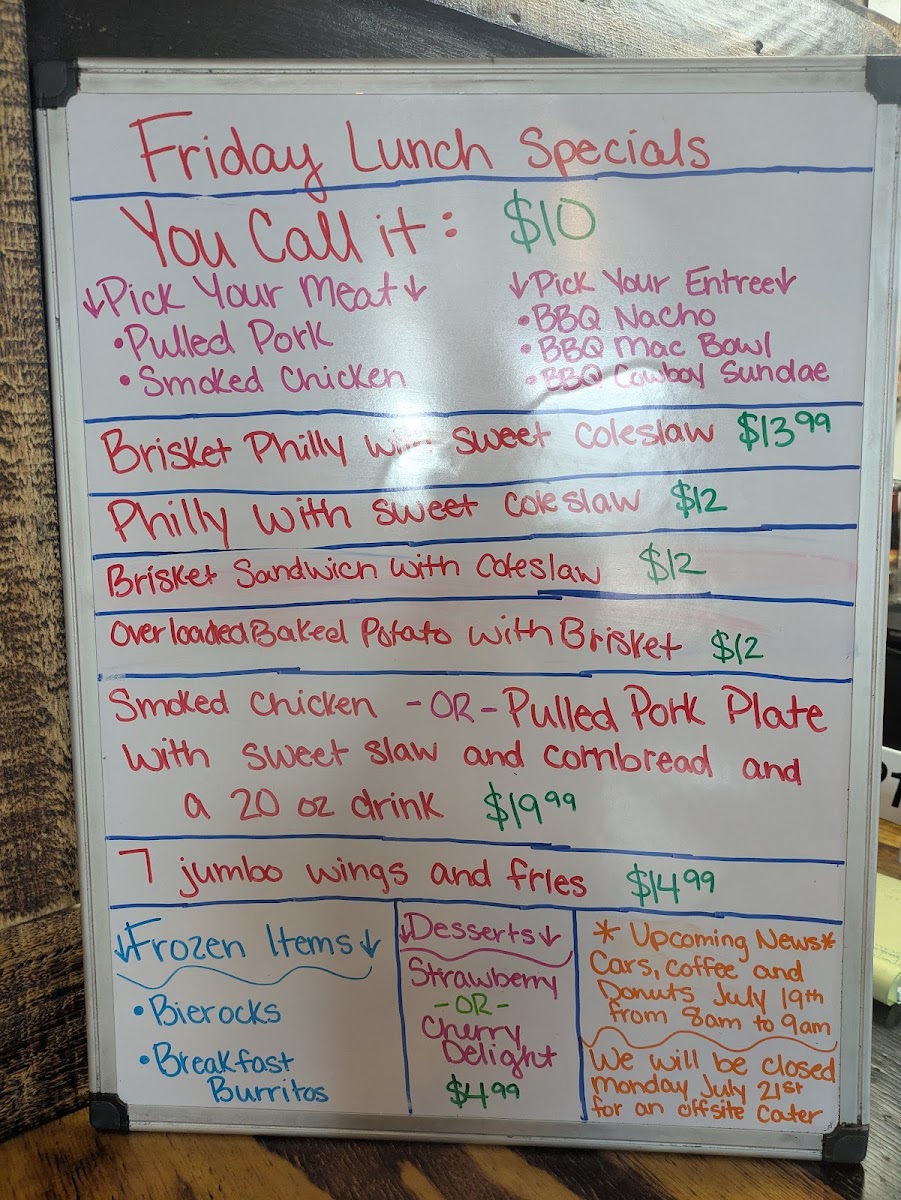 Friday Lunch Specials
You Call it: $10
↓Pick Your Meat↓
• Pulled Pork
• Smoked Chicken
↓Pick Your Entree↓
• BBQ Nacho
• BBQ Mac Bowl
• BBQ Cowboy Sundae
Brisket Philly with sweet coleslaw $13.99
Philly with sweet coleslaw $12
Brisket Sandwich with coleslaw $12
Overloaded Baked Potato with Brisket $12
Smoked Chicken -OR- Pulled Pork Plate
with sweet slaw and cornbread and
a 20 oz drink $19.99
7 jumbo wings and fries $14.99
↓Frozen Items↓
• Bierocks
• Breakfast
Burritos
↓Desserts↓
Strawberry
-OR-
Cherry
Delight
$4.99
* Upcoming News*
Cars, coffee and
Donuts July 19th
from 8am to 9am
We will be closed
monday July 21st
for an offsite cater